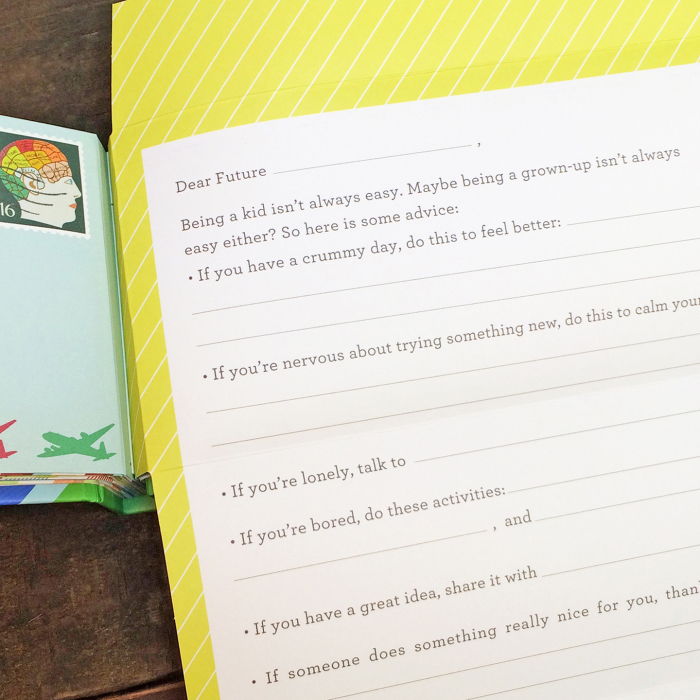 16
Dear Future ,
Being a kid isn't always easy. Maybe being a grown-up isn't always
easy either? So here is some advice:
• If you have a crummy day, do this to feel better:
• If you're nervous about trying something new, do this to calm your
• If you're lonely, talk to
• If you're bored, do these activities:
, and
• If you have a great idea, share it with
• If someone does something really nice for you, than